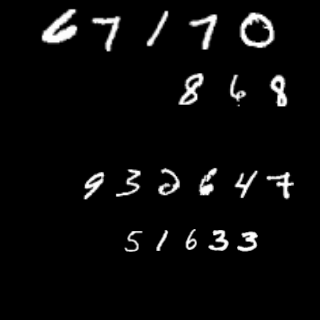 67170
868
932647
51633